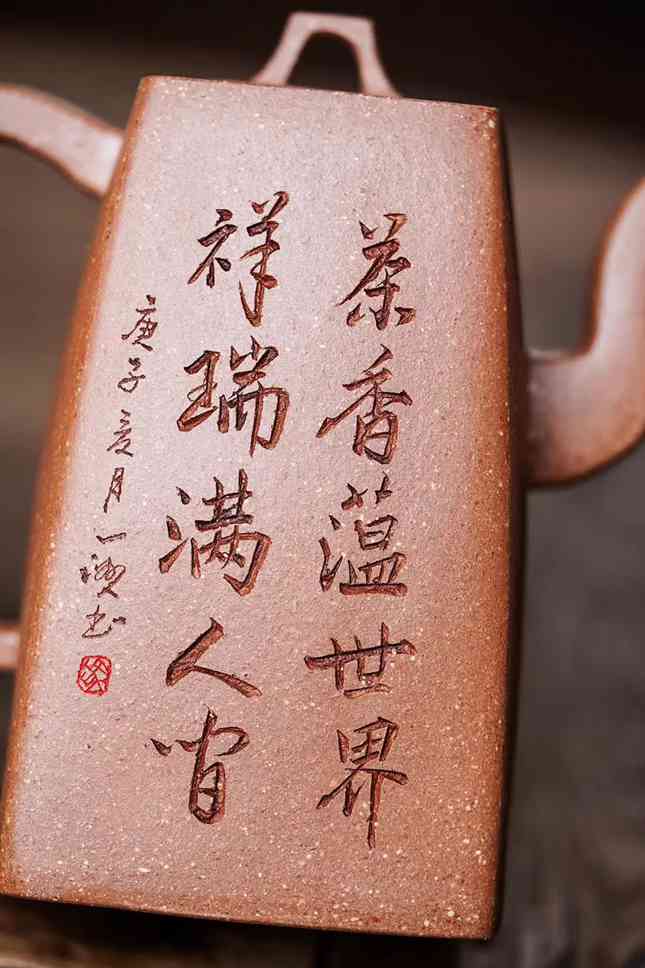 茶香蕰世界
祥瑞满人间
庚子夏月一书